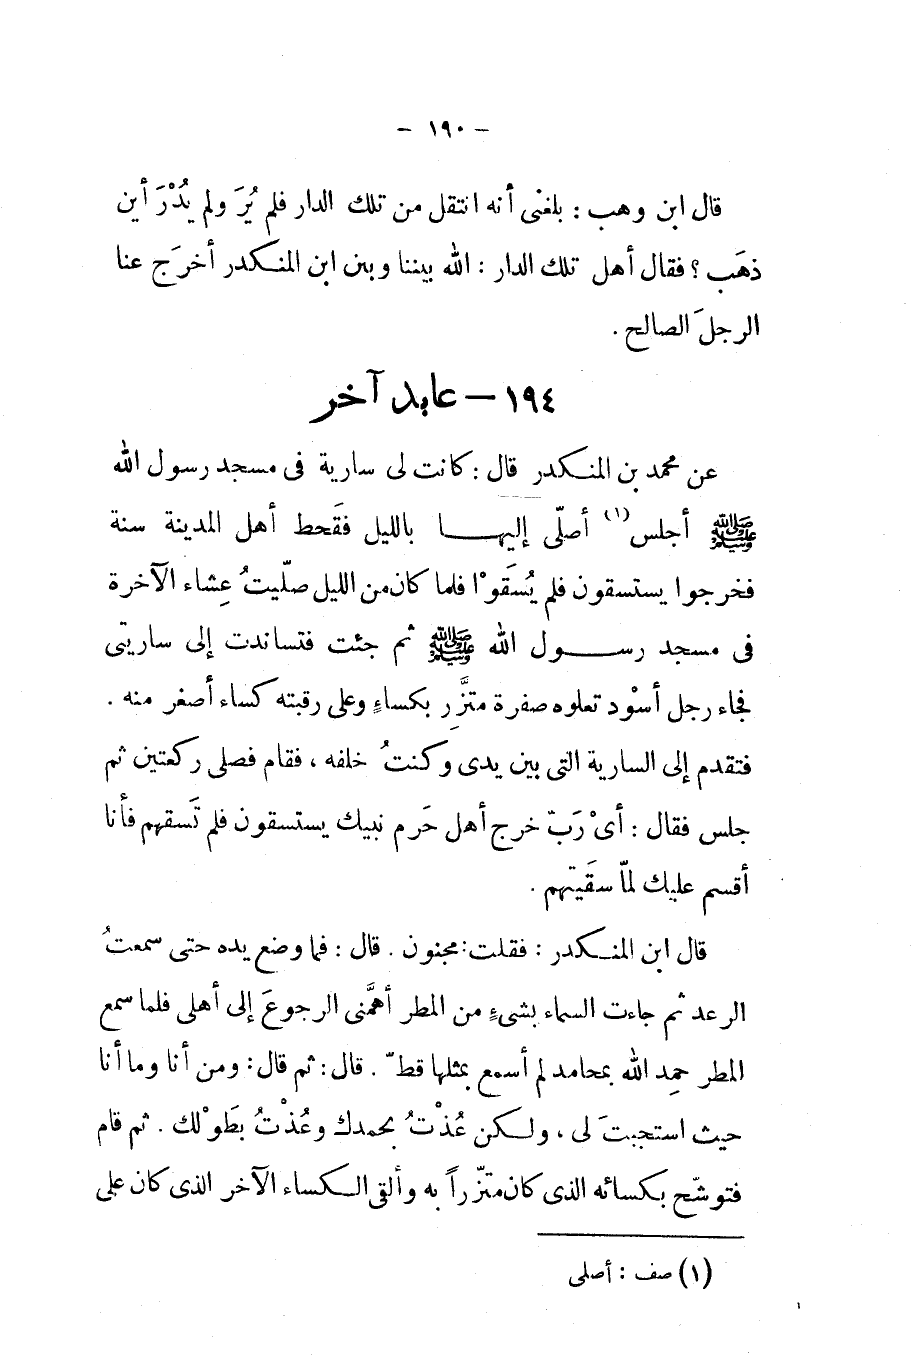 — ١٩٠ —
قال ابن وهب : بلغنى أنه انتقل من تلك الدار فلم يُرَ ولم يُدْرَ أين
ذهَب ؟ فقال أهل تلك الدار : الله بيننا وبين ابن المنكدر أخرَج عنا
الرجلَ الصالح .
١٩٤ — عابد آخر
عن محمد بن المنكدر قال : كانت لى سارية فى مسجد رسول الله
ﷺ أجلس (١) أصلّى إليها بالليل فقَحط أهل المدينة سنة
فخرجوا يستسقون فلم يُسقَوْا فلما كان من الليل صلّيتُ عِشاء الآخرة
فى مسجد رسول الله ﷺ ثم جئت فتساندت إلى ساريتى
فجاء رجل أسْود تعلوه صفرة متَّزِر بكساءٍ وعلى رقبته كساء أصغر منه .
فتقدم إلى السارية التى بين يدى وكنتُ خلفه ، فقام فصلى ركعتين ثم
جلس فقال : أىْ رَبّ خرج أهل حَرم نبيك يستسقون فلم تَسقهم فأنا
أقسم عليك لمّا سقَيتهم .
قال ابن المنكدر : فقلت : مجنون . قال : فما وضع يده حتى سمعتُ
الرعد ثم جاءت السماء بشىءٍ من المطر أهمَّنى الرجوعَ إلى أهلى فلما سمع
المطر حمِد الله بمحامد لم أسمع بمثلها قطّ . قال : ثم قال : ومن أنا وما أنا
حيث استجبتَ لى ، ولكن عُذْتُ بحمدك وعُذْتُ بطَوْلك . ثم قام
فتوشّح بكسائه الذى كان متّزراً به وألقى الكساء الآخر الذى كان على
(١) صف : أصلى